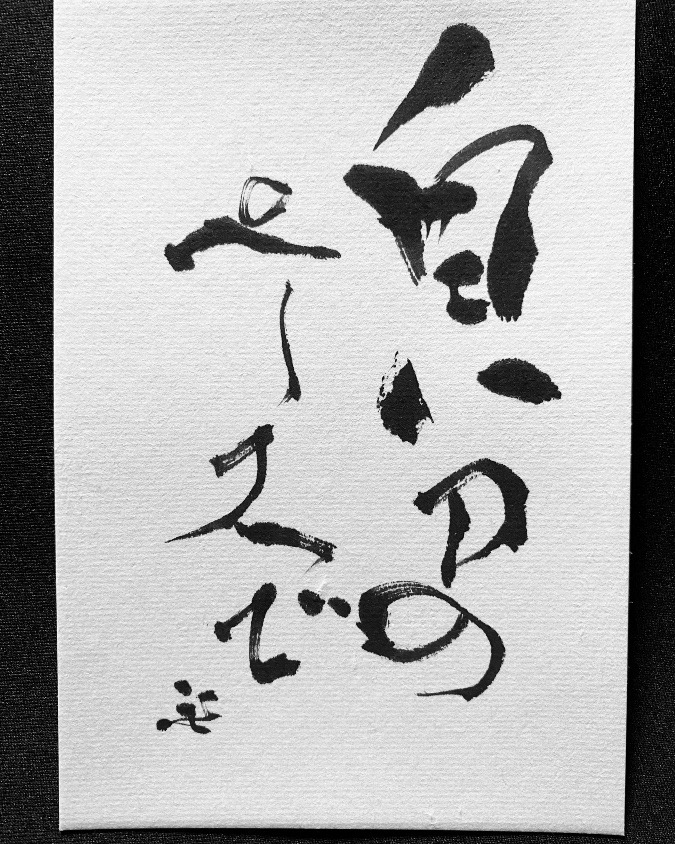 自分の
ペースで